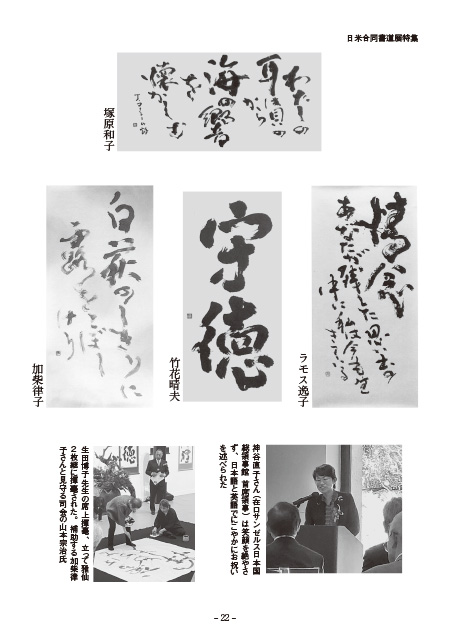 日米合同書道展特集
わたしの
耳は貝の
から
海の響
を
懐かしむ
塚原和子
あなたが残した思い出の
中に私は今も生
きている
ラモス逸子
守徳
竹花晴夫
白萩のしきりに
露をこぼし
けり
加柴律子
神谷直子さん(在ロサンゼルス日本国
総領事館 首席領事)は笑顔を絶やさ
ず、日本語と英語でにこやかにお祝い
を述べられた
生田博子先生の席上揮毫、立って雅仙
2枚継に揮毫された。補助する加柴律
子さんと見守る司会の山本宗治氏
– 22 –